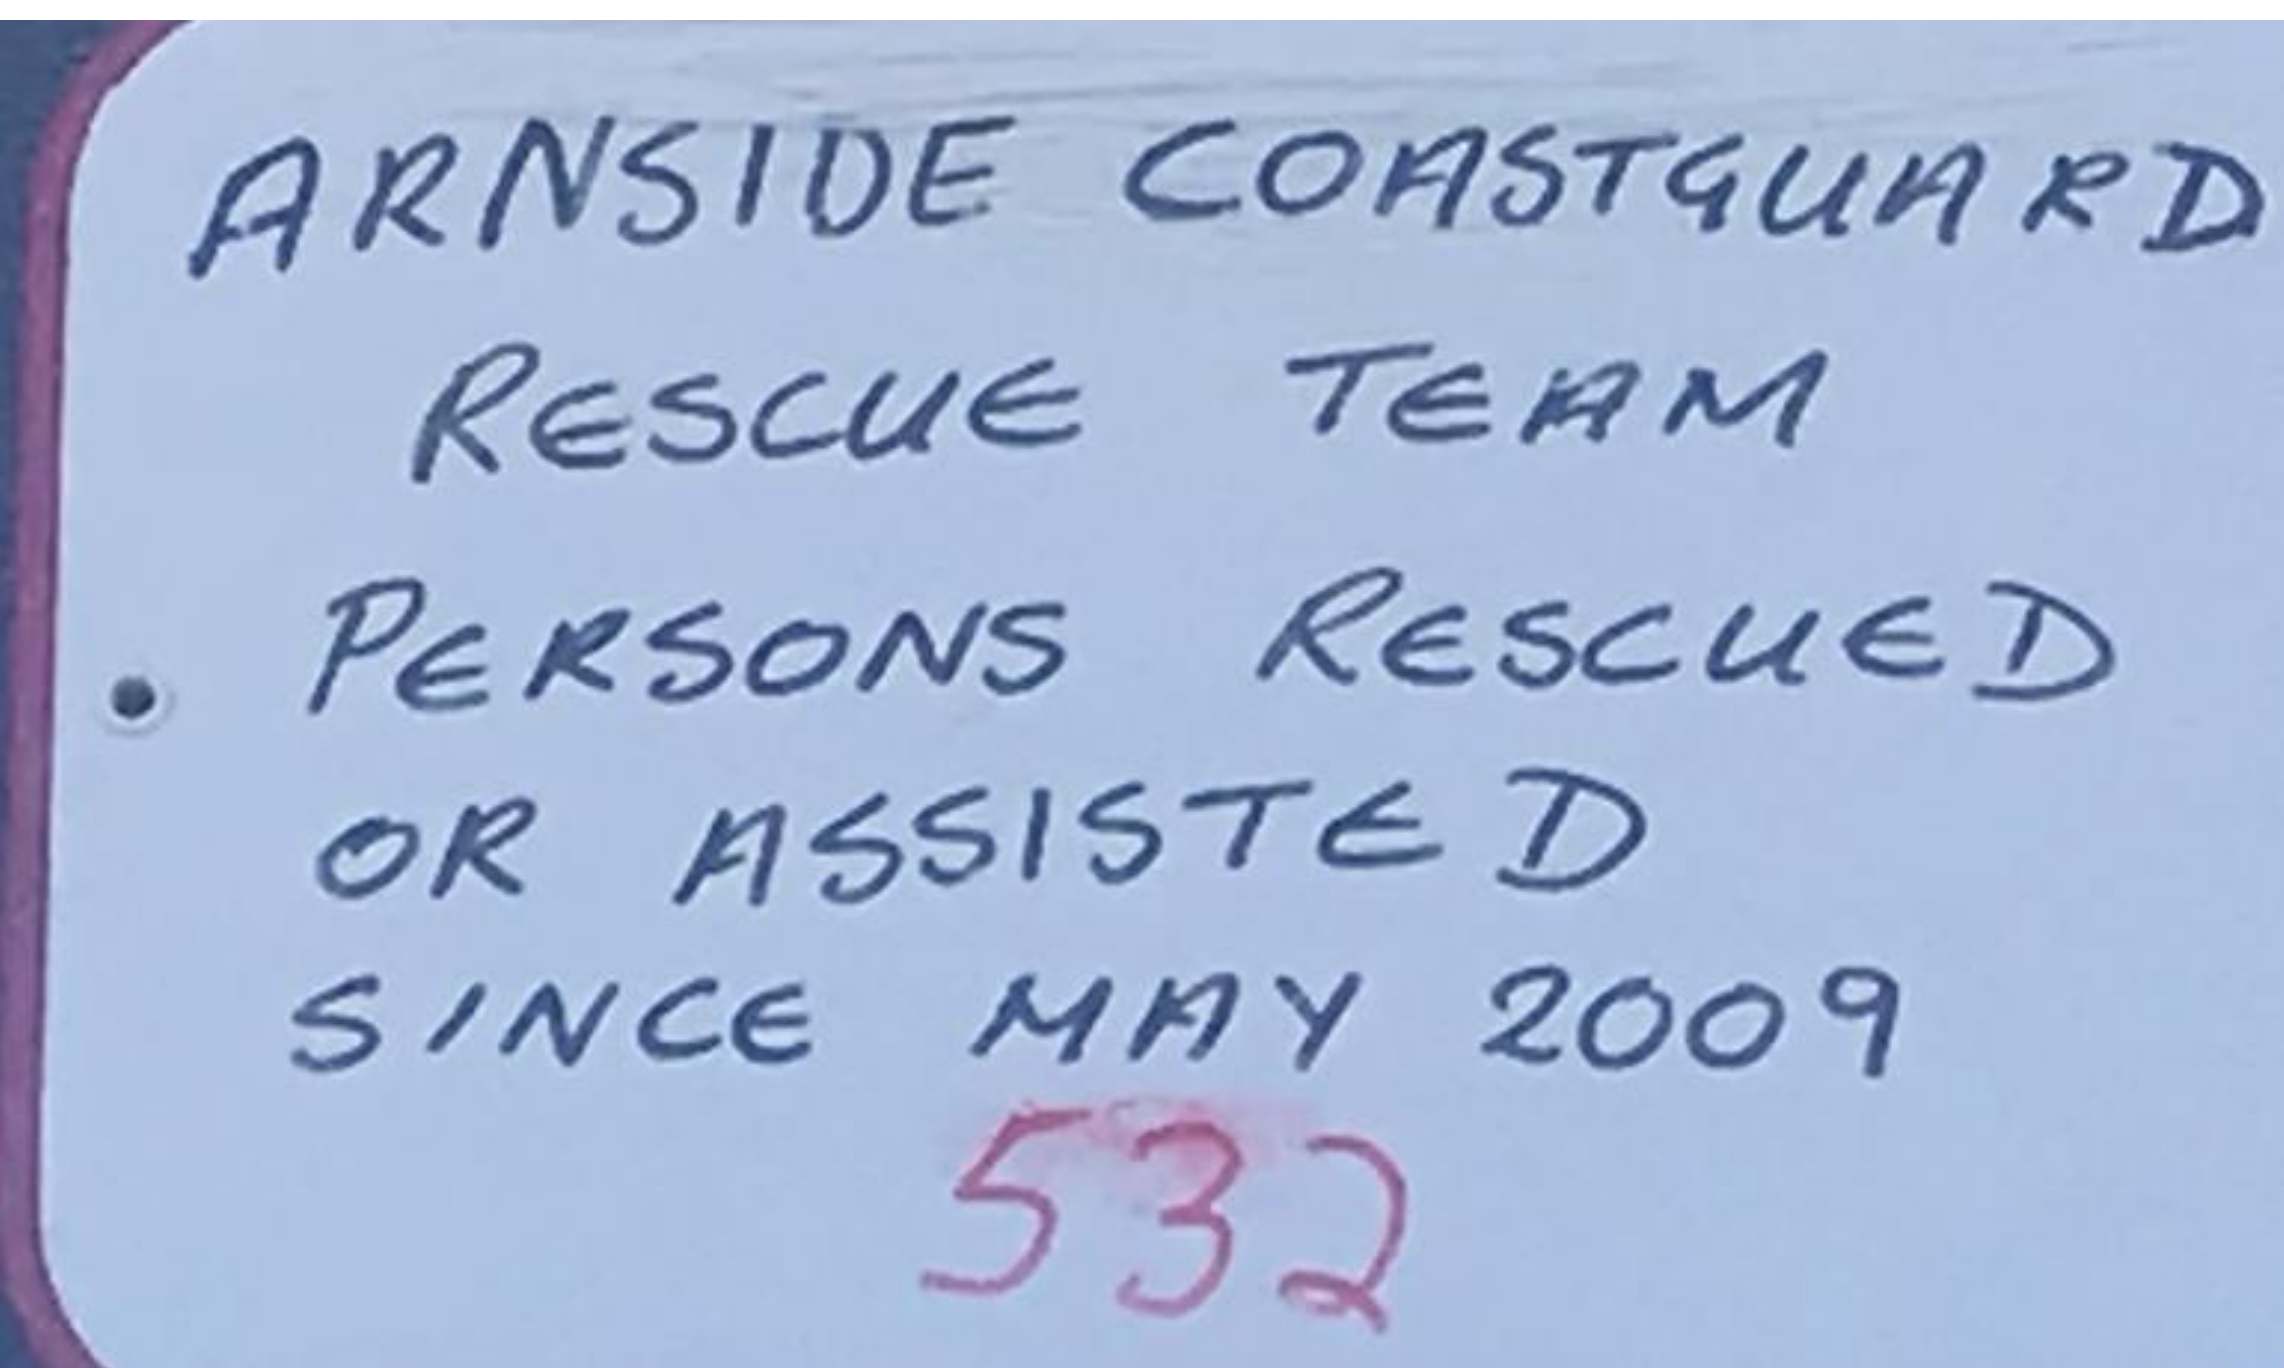 ARNSIDE COASTGUARD
RESCUE TEAM
PERSONS RESCUED
OR ASSISTED
SINCE MAY 2009
532